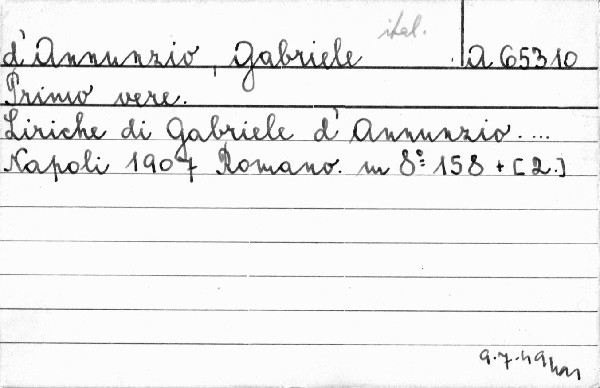 ital.
d'Annunzio, Gabriele A 65310
Primo vere.
Liriche di Gabriele d'Annunzio....
Napoli 1907 Romano. in 8º: 158 + [2.]
9.7.49